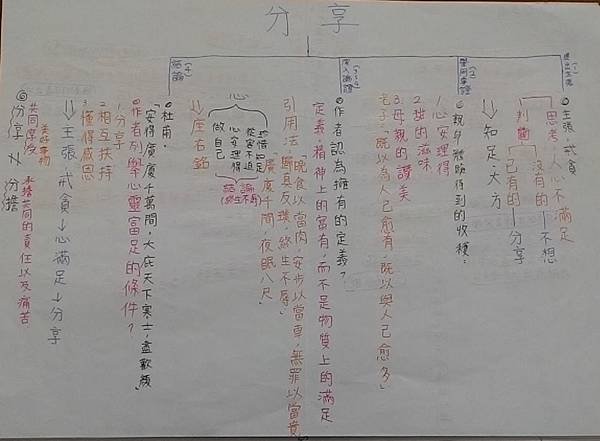 分享
(1)提出主張
主張:戒貪
思考:人心不滿足
判斷
沒有的─不想
已有的─分享
知足,大方
(2)舉例舉證
親身體驗得到的收穫:
1.心安理得
2.甜的滋味
3.母親的讚美
老子:「既以為人己愈有,既以與人己愈多」
(3)深入論證
作者認為擁有的定義?
定義:精神上的富有,而不是物質上的滿足
引用法
晚食以當肉,安步以當車,無罪以當貴
歸真反璞,終生不辱。
「廣廈千間,夜眠八尺」
(4)結論
心
珍惜知足
從容不迫
心安理得
做自己
結論
座右銘
杜甫:
「安得廣廈千萬間,大庇天下寒士,盡歡顏」
作者列舉心靈富足的條件?
1.分享
2.相互扶持
3.懂得感恩
主張戒貪→心滿足→分享
分享 分擔
共同享受
美好事物
承擔共同的責任以及痛苦